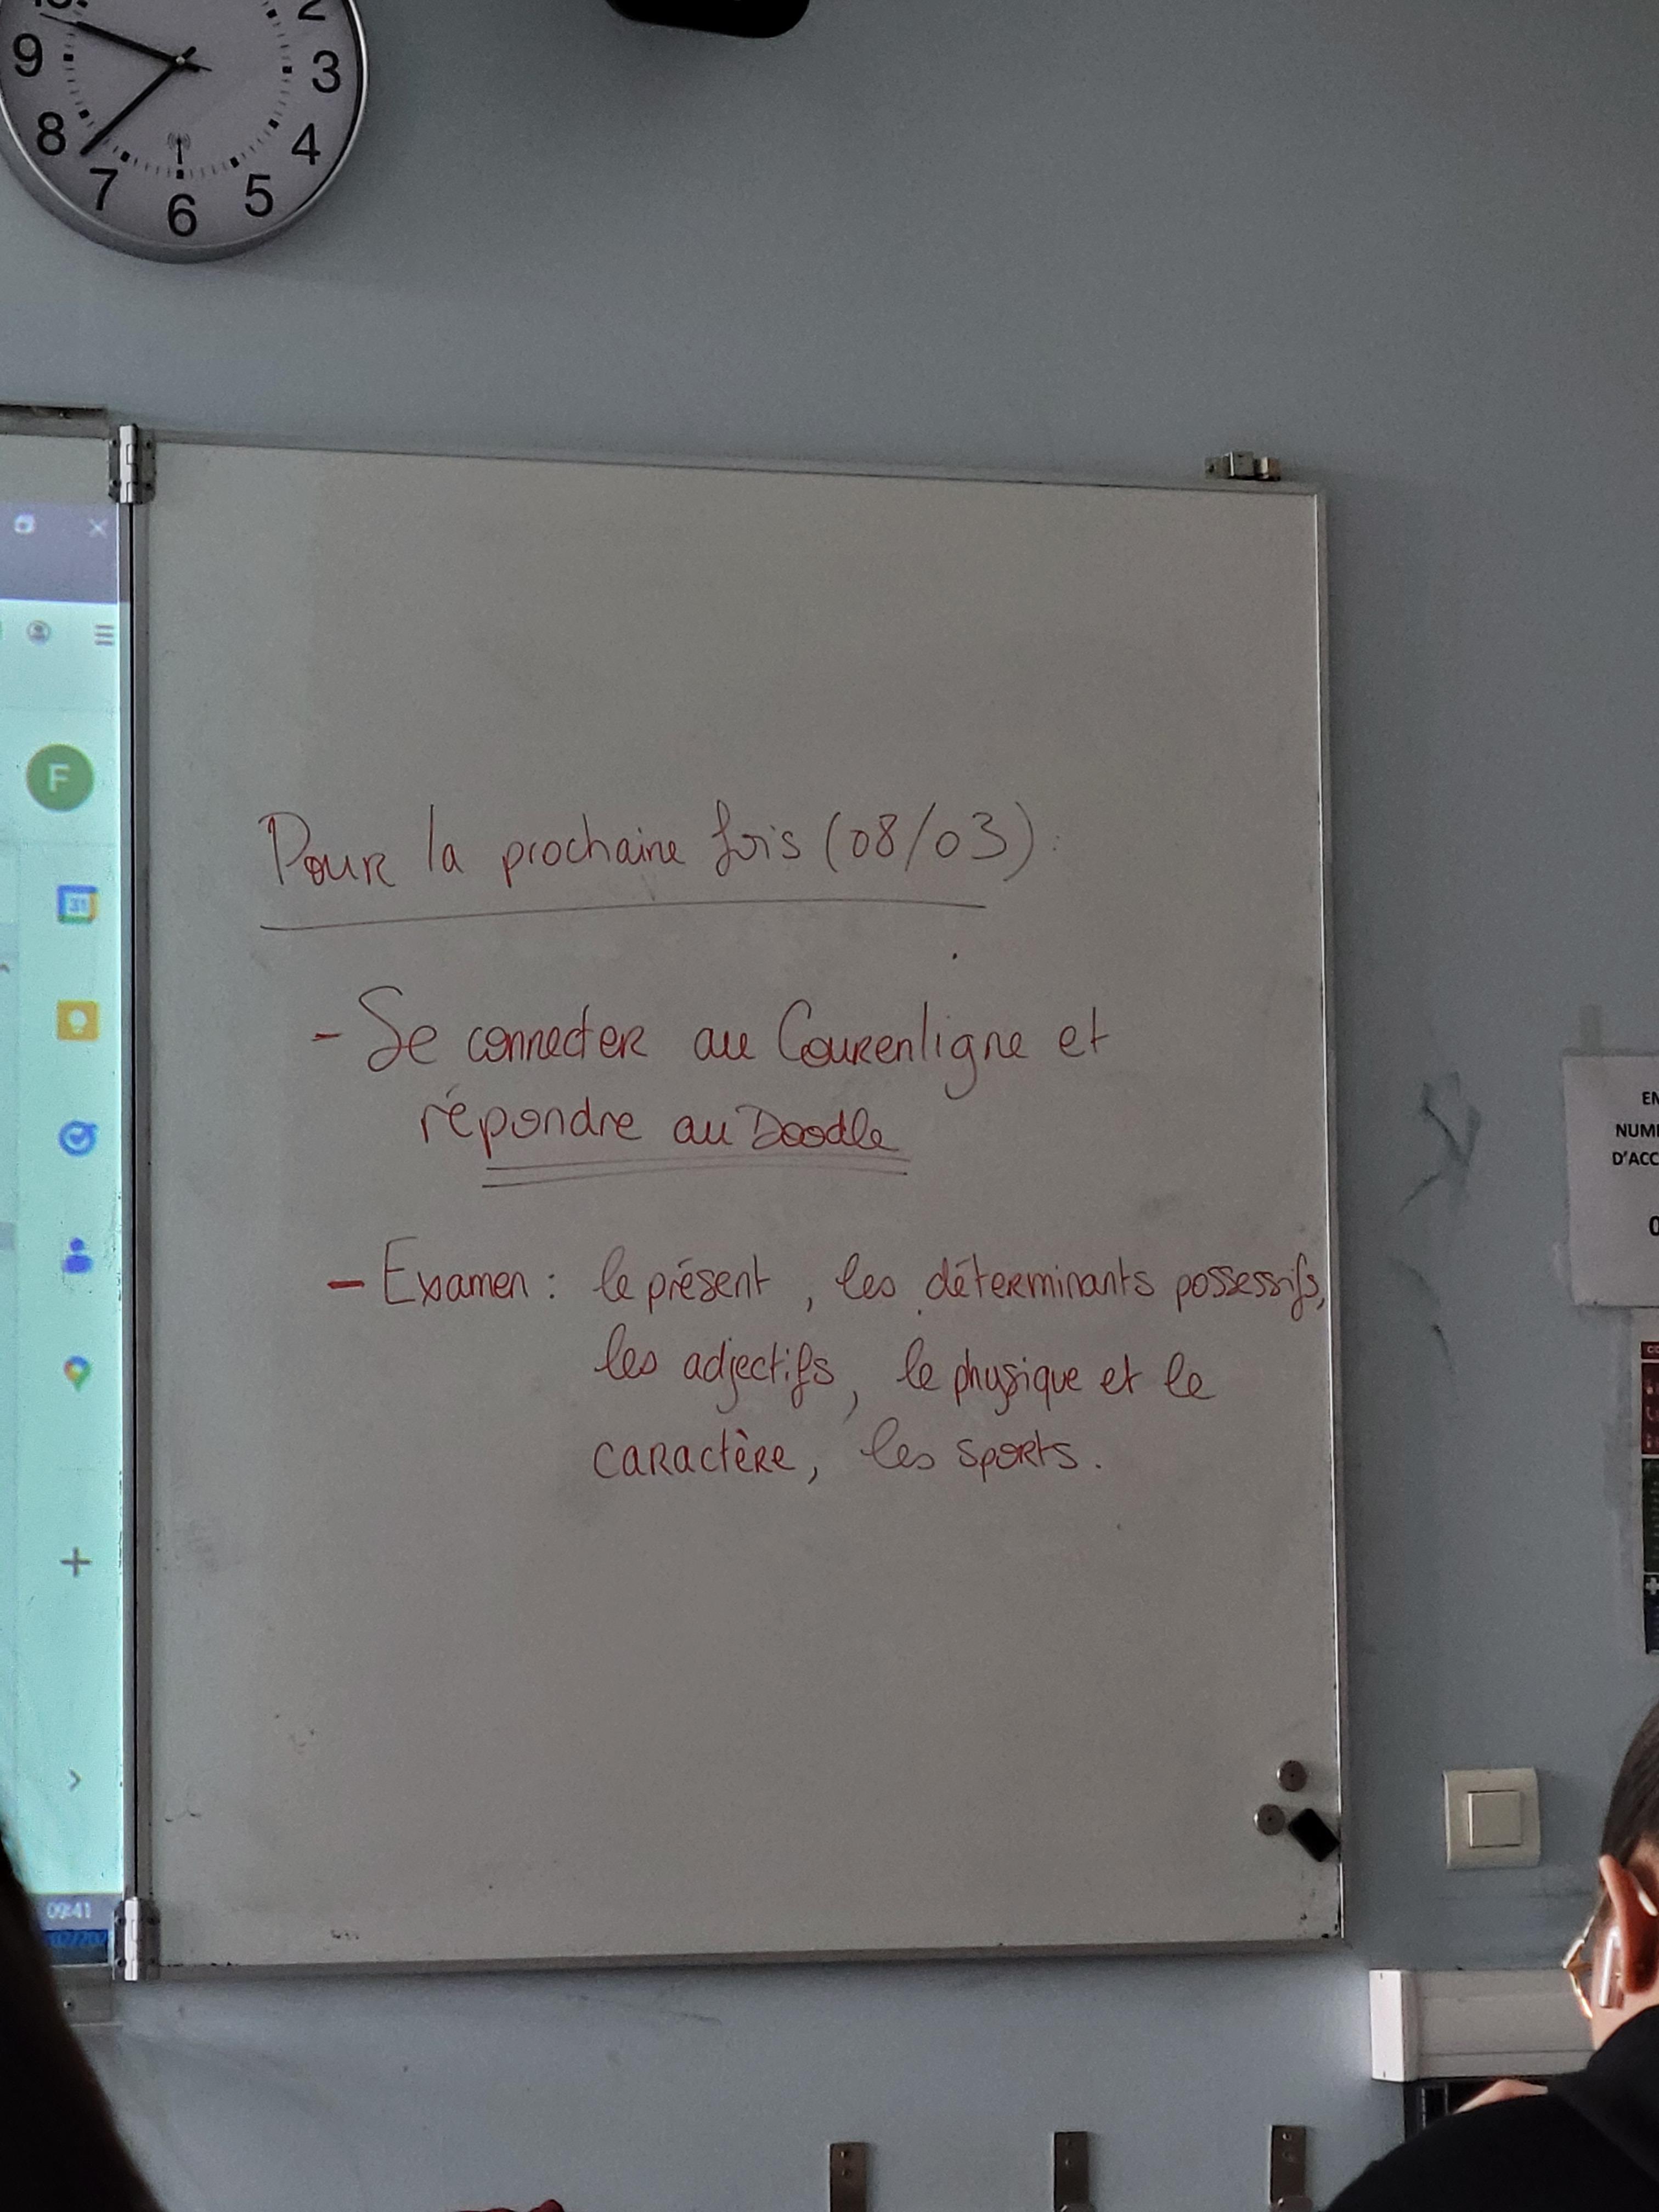 2
9
3
8
4
7
5
6
F
31
Pour la prochaine fois (08/03) :
- Se connecter au Courenligne et
répondre au Doodle
- Examen : le présent, les déterminants possessifs,
les adjectifs, le physique et le
caractère, les sports.
EN
NUM
D'ACC
0
09:41